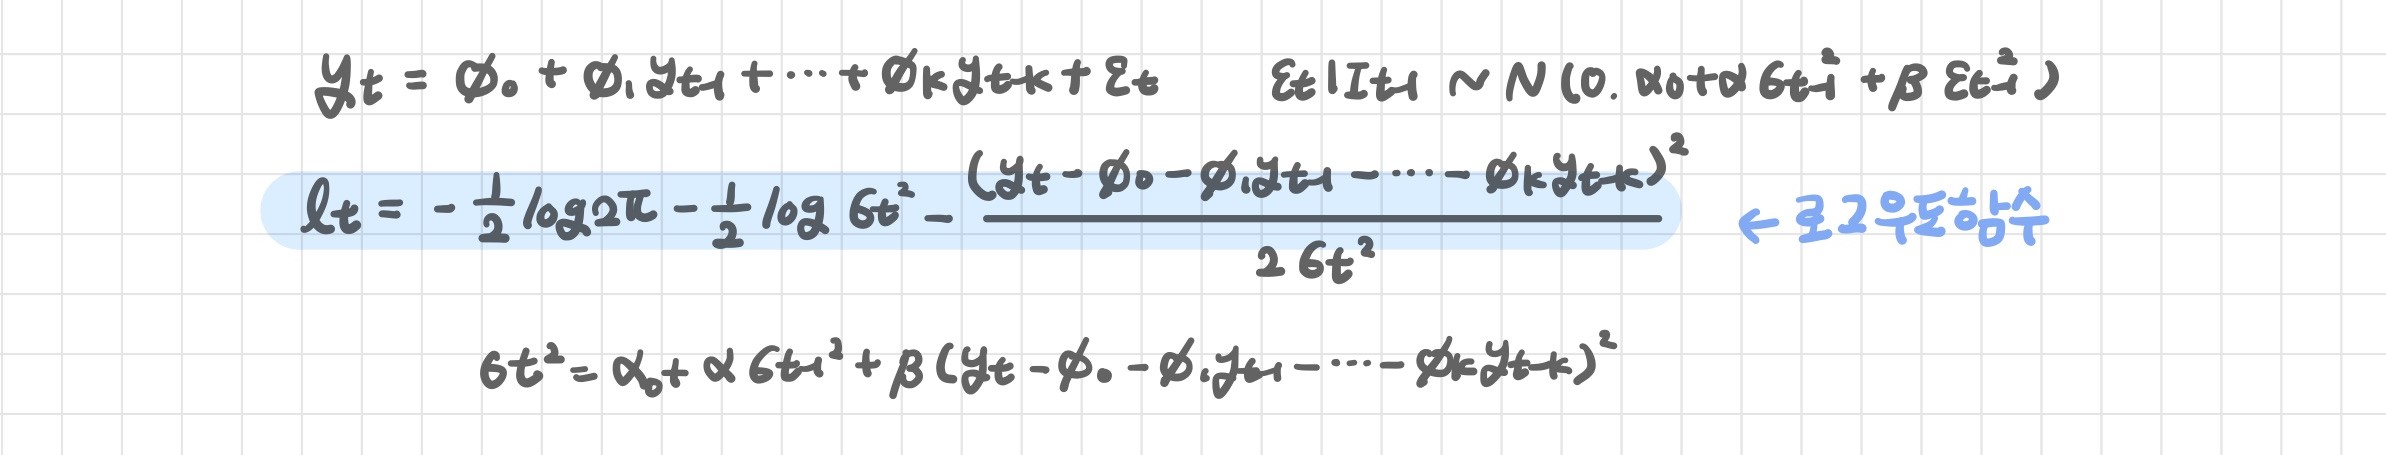 yₜ = ϕ₀ + ϕ₁yₜ₋₁ + ⋯ + ϕₖyₜ₋ₖ + εₜ   εₜ|Iₜ₋₁ ~ N(0. α₀+α σₜ₋₁² + β εₜ₋₁²)
ℓₜ = - 1/2 log2π - 1/2 log σₜ² - (yₜ - ϕ₀ - ϕ₁yₜ₋₁ - ⋯ - ϕₖyₜ₋ₖ)² / 2σₜ² ← 로그우도함수
σₜ² = α₀ + α σₜ₋₁² + β(yₜ - ϕ₀ - ϕ₁yₜ₋₁ - ⋯ - ϕₖyₜ₋ₖ)²